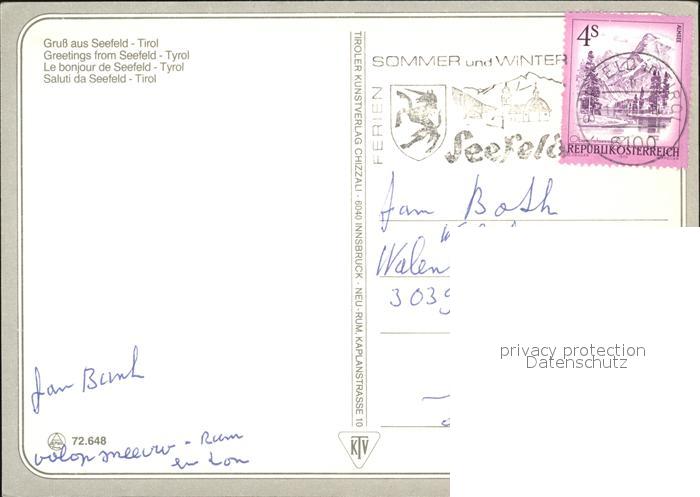 Gruß aus Seefeld - Tirol
Greetings from Seefeld - Tyrol
Le bonjour de Seefeld - Tyrol
Saluti da Seefeld - Tirol
TIROLER KUNSTVERLAG CHIZZALI · 6040 INNSBRUCK · NEU-RUM, KAPLANSTRASSE 10
SOMMER und WINTER
FERIEN
Seefeld
4S
ALMSEE
6100
REPUBLIK ÖSTERREICH
Jam Both
Walen
3039
privacy protection
Datenschutz
72.648
volop sneeuw - Rum
en zon
KTV